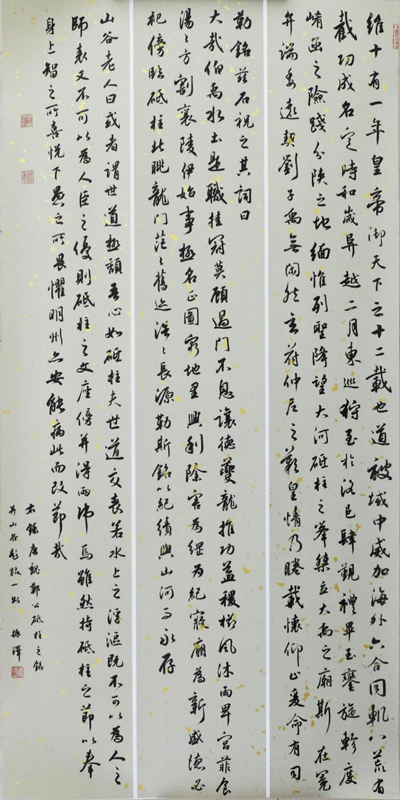 維十有一年皇帝御天下之十二載也道被域中威加海外六合同軌八荒有
截功成名定時和歲阜越二月東巡狩至於洛邑肆覲禮畢玉鑾旋軫度
崤函之險踐分陝之地緬惟列聖降望大河砥柱之峯桀立大禹之廟斯在冕
弁端委遠契劉子禹無間然玄符仲尼之歎皇情乃睠載懷仰止爰命有司
勒銘茲石祝之其詞曰
大哉伯禹水土是職挂冠莫顧過門不息讓德夔龍推功益稷櫛風沐雨卑宮菲食
湯〻方割襄陵伊始事極名正圖窮地里興利除害為綱為紀寢廟為新盛德必
祀傍臨砥柱北眺龍門茫〻舊迹浩〻長源勒斯銘以紀績與山河而永存
山谷老人曰或者謂世道極頹吾心如砥柱夫世道交喪若水上之浮漚既不可以為人之
師表又不可以為人臣之優則砥柱之文座傍并得兩師焉雖然持砥柱之節以奉
身上智之所喜悅下愚之所畏懼明州亦安能病此而改節哉
右錄唐魏鄭公砥柱之銘
并山谷跋一則 振澤